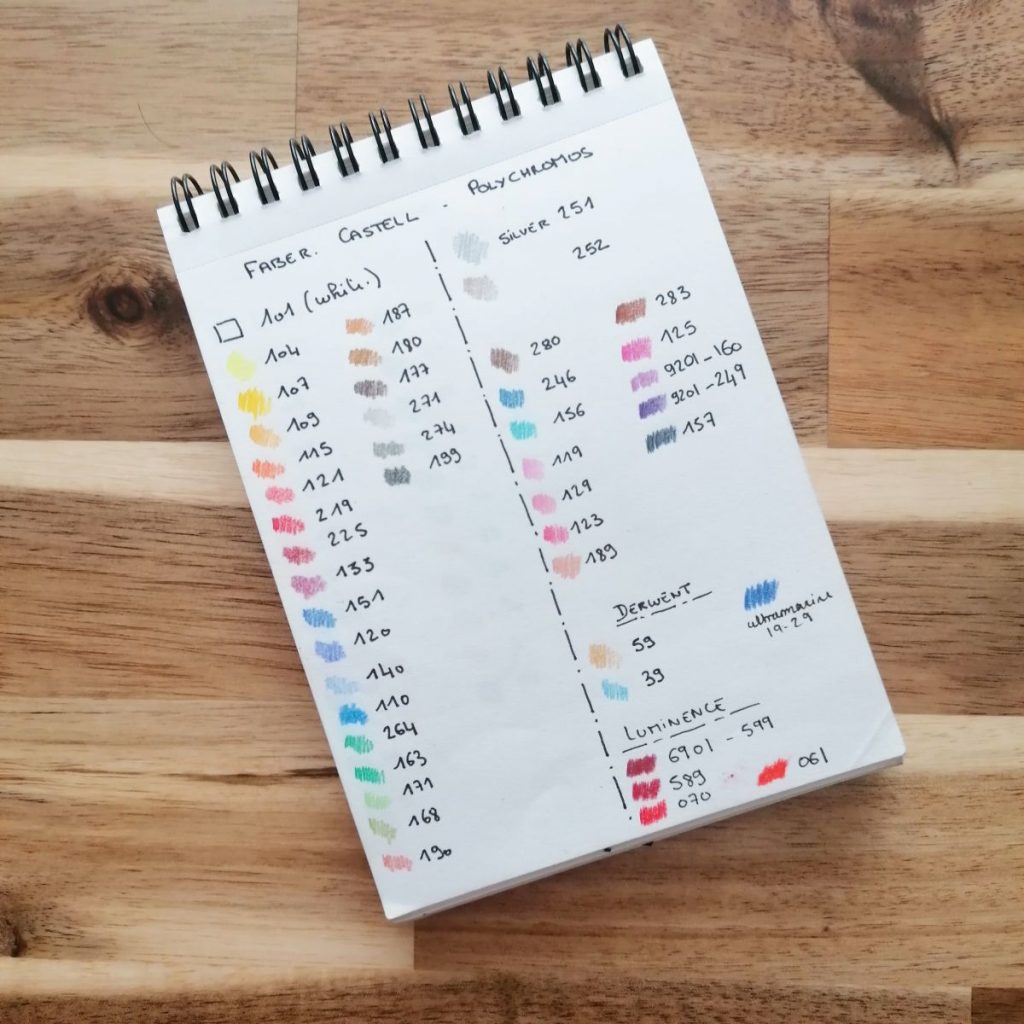 FABER. CASTELL - POLYCHROMOS
101 (white)
104
107
109
115
121
219
225
133
151
120
140
110
264
163
171
168
190
187
180
177
271
274
199
SILVER 251
252
280
246
156
119
129
123
189
283
125
9201-160
9201-249
157
DERWENT
59
39
ultramarine
19-29
LUMINENCE
6901 - 599
589
070
061